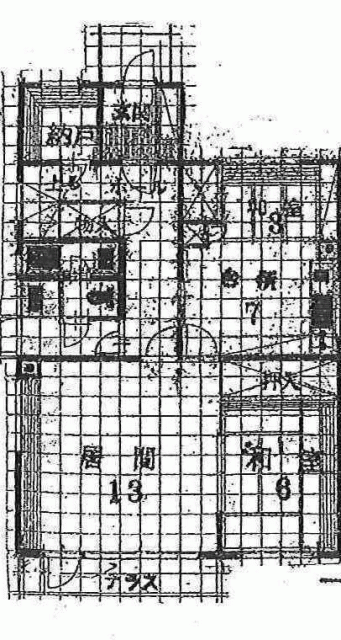 玄関
納戸
ホール
物入
和室
3
台所
7
押入
居間
13
和室
6
テラス